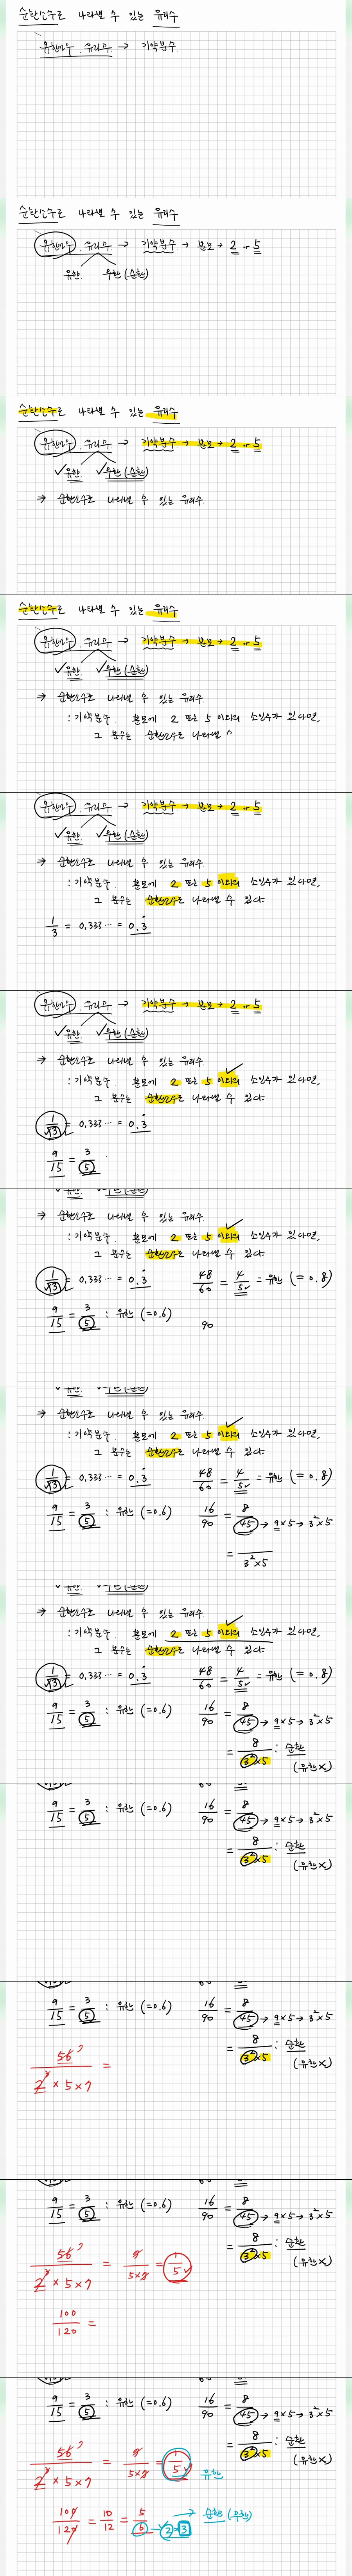 순환소수로 나타낼 수 있는 유리수
유한소수. 유리수 → 기약분수
순환소수로 나타낼 수 있는 유리수
유한소수. 유리수 → 기약분수 → 분모 → 2 or 5
유한 무한(순환)
순환소수로 나타낼 수 있는 유리수
유한소수. 유리수 → 기약분수 → 분모 → 2 or 5
✓유한 ✓무한(순환)
⇒ 순환소수로 나타낼 수 있는 유리수.
순환소수로 나타낼 수 있는 유리수
유한소수. 유리수 → 기약분수 → 분모 → 2 or 5
✓유한 ✓무한(순환)
⇒ 순환소수로 나타낼 수 있는 유리수.
: 기약분수. 분모에 2 또는 5 이외의 소인수가 있다면,
그 분수는 순환소수로 나타낼 ㅅ
유한소수. 유리수 → 기약분수 → 분모 → 2 or 5
✓유한 ✓무한(순환)
⇒ 순환소수로 나타낼 수 있는 유리수.
: 기약분수. 분모에 2 또는 5 이외의 소인수가 있다면,
그 분수는 순환소수로 나타낼 수 있다.
1/3 = 0.333··· = 0.3̇
유한소수. 유리수 → 기약분수 → 분모 → 2 or 5
✓유한 ✓무한(순환)
⇒ 순환소수로 나타낼 수 있는 유리수.
: 기약분수. 분모에 2 또는 5 이외의 소인수가 있다면,
그 분수는 순환소수로 나타낼 수 있다.
1/3 = 0.333··· = 0.3̇
9/15 = 3/5
⇒ 순환소수로 나타낼 수 있는 유리수.
: 기약분수. 분모에 2 또는 5 이외의 소인수가 있다면,
그 분수는 순환소수로 나타낼 수 있다.
1/3 = 0.333··· = 0.3̇ 48/60 = 4/5 = 유한 (= 0.8)
9/15 = 3/5 : 유한 (=0.6) 90
⇒ 순환소수로 나타낼 수 있는 유리수.
: 기약분수. 분모에 2 또는 5 이외의 소인수가 있다면,
그 분수는 순환소수로 나타낼 수 있다.
1/3 = 0.333··· = 0.3̇ 48/60 = 4/5 = 유한 (= 0.8)
9/15 = 3/5 : 유한 (=0.6) 16/90 = 8/45 → 9×5 → 3²×5
= /3²×5
⇒ 순환소수로 나타낼 수 있는 유리수.
: 기약분수. 분모에 2 또는 5 이외의 소인수가 있다면,
그 분수는 순환소수로 나타낼 수 있다.
1/3 = 0.333··· = 0.3̇ 48/60 = 4/5 = 유한 (= 0.8)
9/15 = 3/5 : 유한 (=0.6) 16/90 = 8/45 → 9×5 → 3²×5
= 8/3²×5 : 순환
(유한×)
9/15 = 3/5 : 유한 (=0.6) 16/90 = 8/45 → 9×5 → 3²×5
= 8/3²×5 : 순환
(유한×)
9/15 = 3/5 : 유한 (=0.6) 16/90 = 8/45 → 9×5 → 3²×5
= 8/3²×5 : 순환
(유한×)
56/2³×5×7 =
9/15 = 3/5 : 유한 (=0.6) 16/90 = 8/45 → 9×5 → 3²×5
= 8/3²×5 : 순환
(유한×)
56/2³×5×7 = 7/5×7 = 1/5
100/120 =
9/15 = 3/5 : 유한 (=0.6) 16/90 = 8/45 → 9×5 → 3²×5
= 8/3²×5 : 순환
(유한×)
56/2³×5×7 = 7/5×7 = 1/5 유한
100/120 = 10/12 = 5/6 → 2×3 → 순환 (무한)